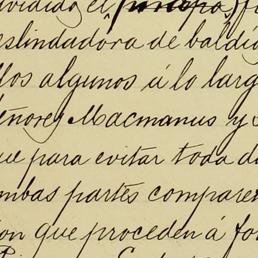 vidido el
eslindadora de baldío
llos algunos á lo larg
eñores Macmanus y S
ue para evitar toda d
mbas partes comparer
ion que proceden á for